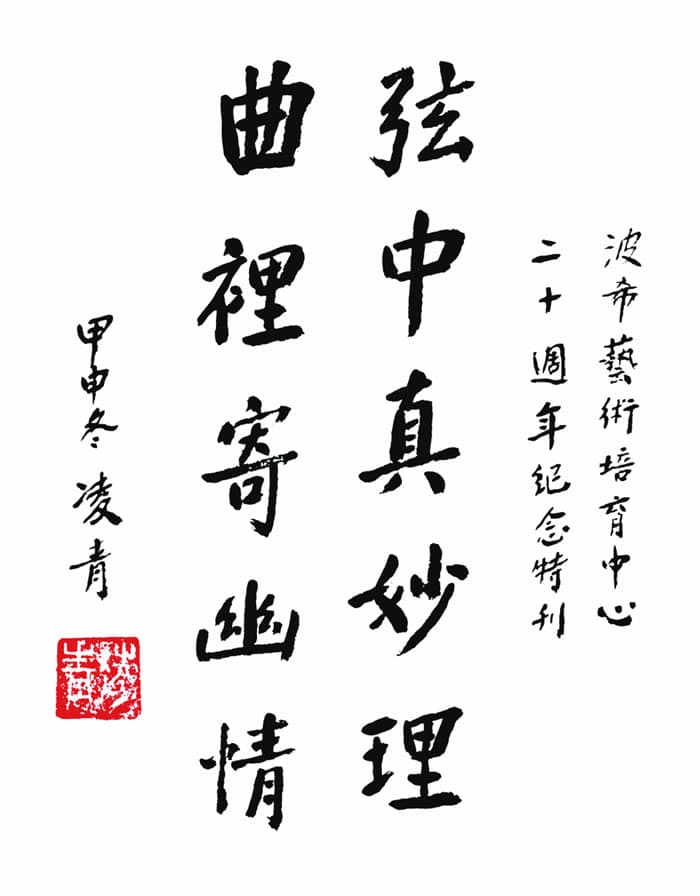 波希藝術培育中心
二十週年紀念特刊
弦中真妙理
曲裡寄幽情
甲申冬 凌青
凌青